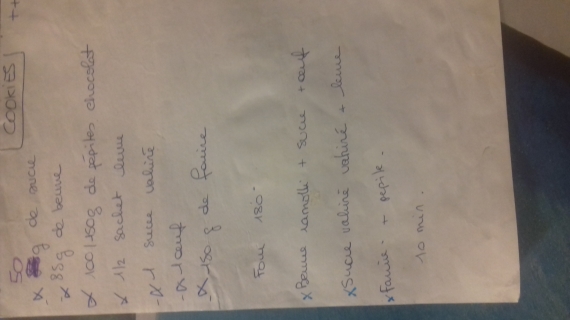 COOKIES ++
- x 50 g de sucre
- x 85g de beurre
x 100/150g de pépites chocolat
x 1/2 sachet levure
- x 1 sucre vanillé
- x 1 œuf
- x 150 g de farine
Four 180.
x Beurre ramolli + sucre + œuf
x Sucre vanillé + levure
x Farine + pépite.
10 min.